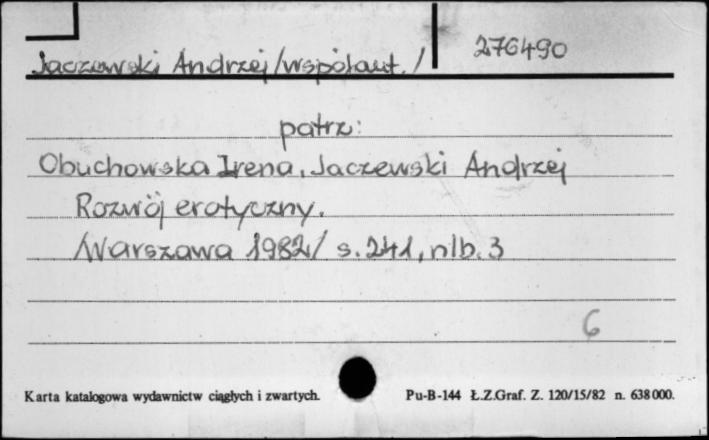 Jaczewski Andrzej /współaut./ 276490
patrz:
Obuchowska Irena, Jaczewski Andrzej
Rozwój erotyczny.
/Warszawa 1982/ s. 241, nlb. 3
6
Karta katalogowa wydawnictw ciągłych i zwartych. Pu-B-144 Ł.Z.Graf. Z. 120/15/82 n. 638000.